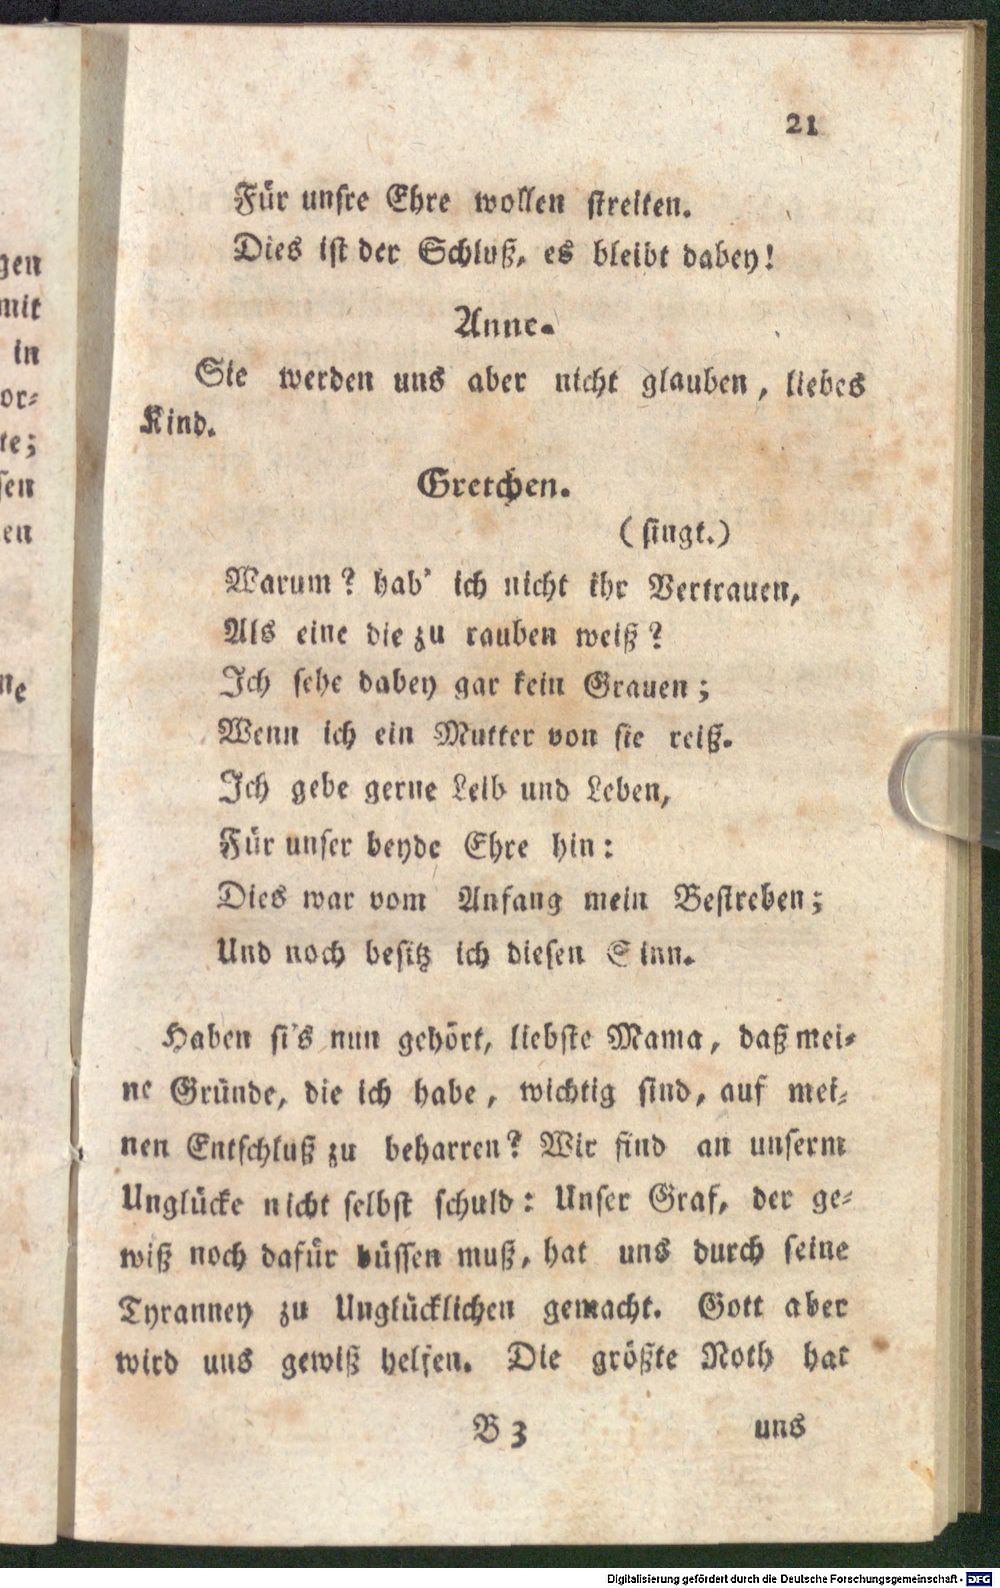 gen
mit
in
or-
te;
sen
en
ne
21
Für unsre Ehre wollen streiten.
Dies ist der Schluß, es bleibt dabey!
Anne.
Sie werden uns aber nicht glauben, liebes
Kind.
Gretchen.
(singt.)
Warum? hab' ich nicht ihr Vertrauen,
Als eine die zu rauben weiß?
Ich sehe dabey gar kein Grauen;
Wenn ich ein Mutter von sie reiß.
Ich gebe gerne Leib und Leben,
Für unser beyde Ehre hin:
Dies war vom Anfang mein Bestreben;
Und noch besitz ich diesen Sinn.
Haben si's nun gehört, liebste Mama, daß mei-
ne Gründe, die ich habe, wichtig sind, auf mei-
nen Entschluß zu beharren? Wir sind an unserm
Unglücke nicht selbst schuld: Unser Graf, der ge-
wiß noch dafür büssen muß, hat uns durch seine
Tyranney zu Unglücklichen gemacht. Gott aber
wird uns gewiß helfen. Die größte Noth hat
B 3
uns
Digitalisierung gefördert durch die Deutsche Forschungsgemeinschaft - DFG